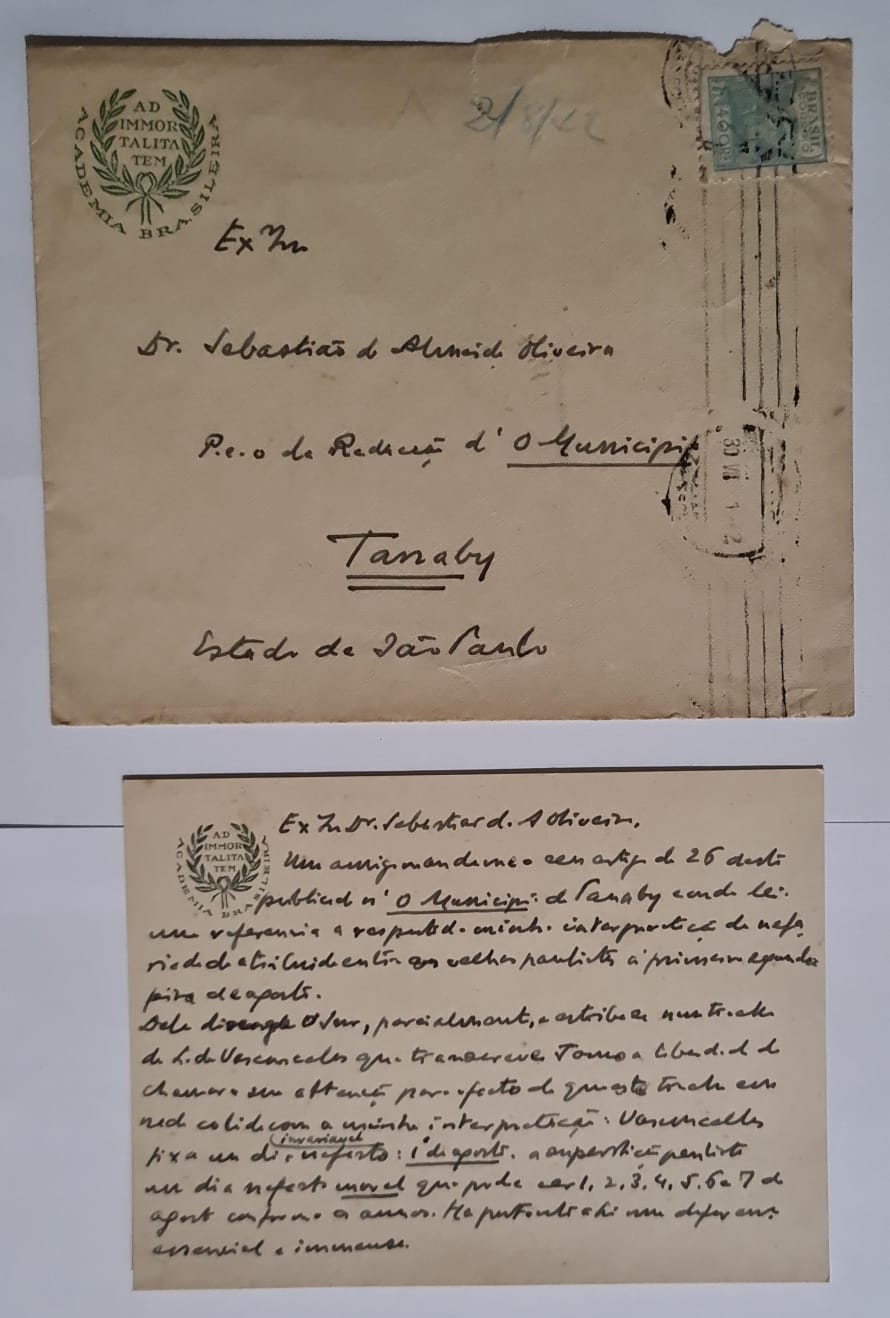 AD
IMMOR
TALITA
TEM
ACADEMIA BRASILEIRA
2/8/42
BRASIL
CORREIO
400
Ex Mo
Dr. Sebastião de Almeida Oliveira
P.e.o da Redacção d' O Municipio
30 VII
Tanaby
Estado de São Paulo
AD
IMMOR
TALITA
TEM
ACADEMIA BRASILEIRA
Ex Mo Dr. Sebastião d. A Oliveira,
Um amigo manda-me o seu artigo de 26 deste
publicado n' O Municipio de Tanaby e onde lei
uma referencia a respeito d. minha interpretação da nefas
riedade attribuida entre os velhos paulistas á primeira segunda
feira de agosto.
Dela discorda O Snr, parcialmente, e estriba-se num trecho
de L. de Vasconcelos que transcreve. Tomo a liberdade de
chamar a sua attenção para o facto de que este trecho em
nada colide com a minha interpretação: Vasconcellos
fixa um dia nefasto: 1º de agosto. a superstição paulista
invariavel
um dia nefasto movel que pode ser 1, 2, 3, 4, 5, 6 e 7 de
agosto conforme os annos. Ha portanto ahi uma differença
essencial e immensa.